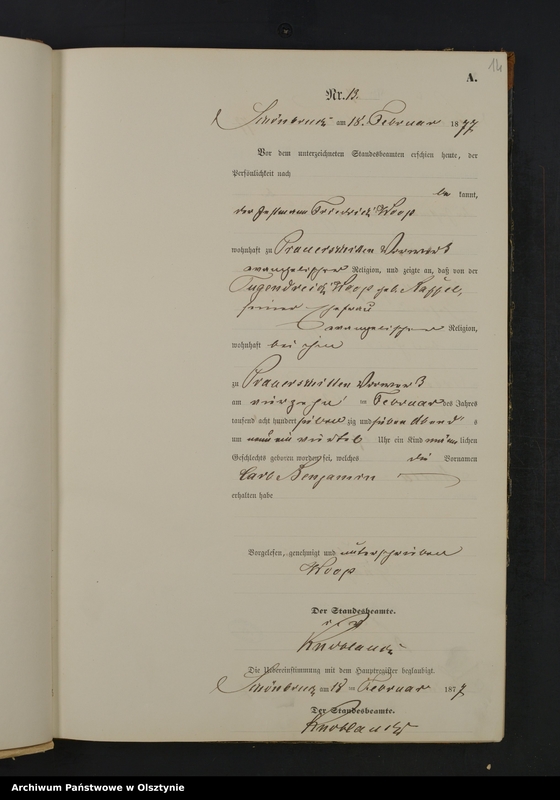 14
A.
Nr. 13.
Schönbruch am 18. Februar 1877
Vor dem unterzeichneten Standesbeamten erschien heute, der
Persönlichkeit nach
be kannt,
der Friedrich Koop
wohnhaft zu Vorwerk
evangelischer Religion, und zeigte an, daß von der
Tugendreich Koop geb. Nassel,
seiner Ehefrau
evangelischer Religion,
wohnhaft bei ihm
zu Vorwerk
am vierzehn = Februar des Jahres
tausend acht hundert sieben zig und sieben Abend s
um neun ein viertel Uhr ein Kind männ lichen
Geschlechts geboren worden sei, welches die Vornamen
Carl Benjamin
erhalten habe
Vorgelesen, genehmigt und unterschrieben
Koop
Der Standesbeamte.
Knoblauch
Die Uebereinstimmung mit dem Hauptregister beglaubigt.
Schönbruch am 18 = Februar 1877
Der Standesbeamte.
Knoblauch
Archiwum Państwowe w Olsztynie